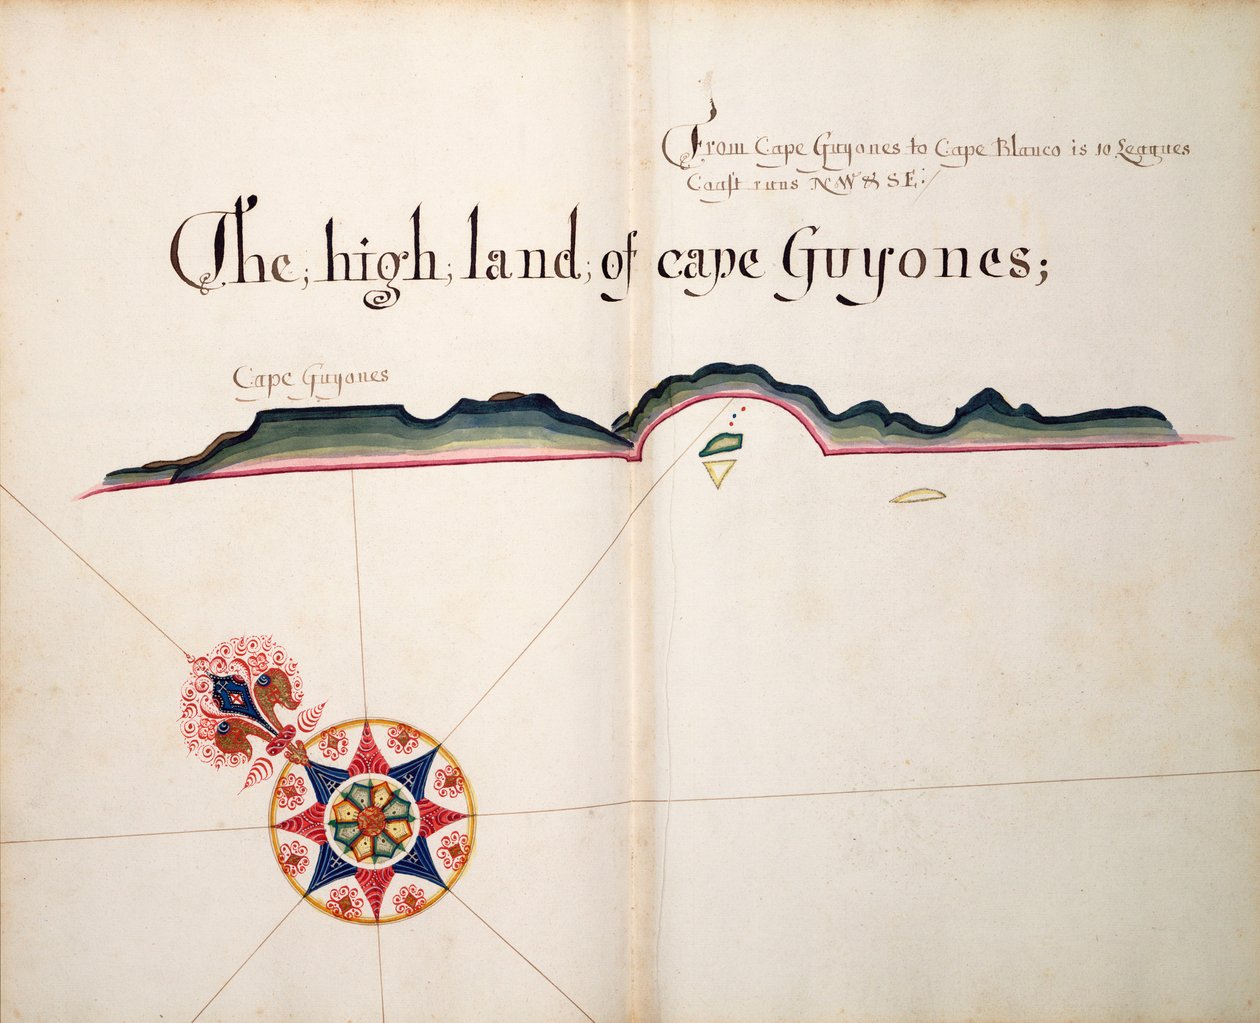 From Cape Guyones to Cape Blanco is 10 Leagues
Coast runs NW & SE:/
The; high; land; of cape Guyones;
Cape Guyones